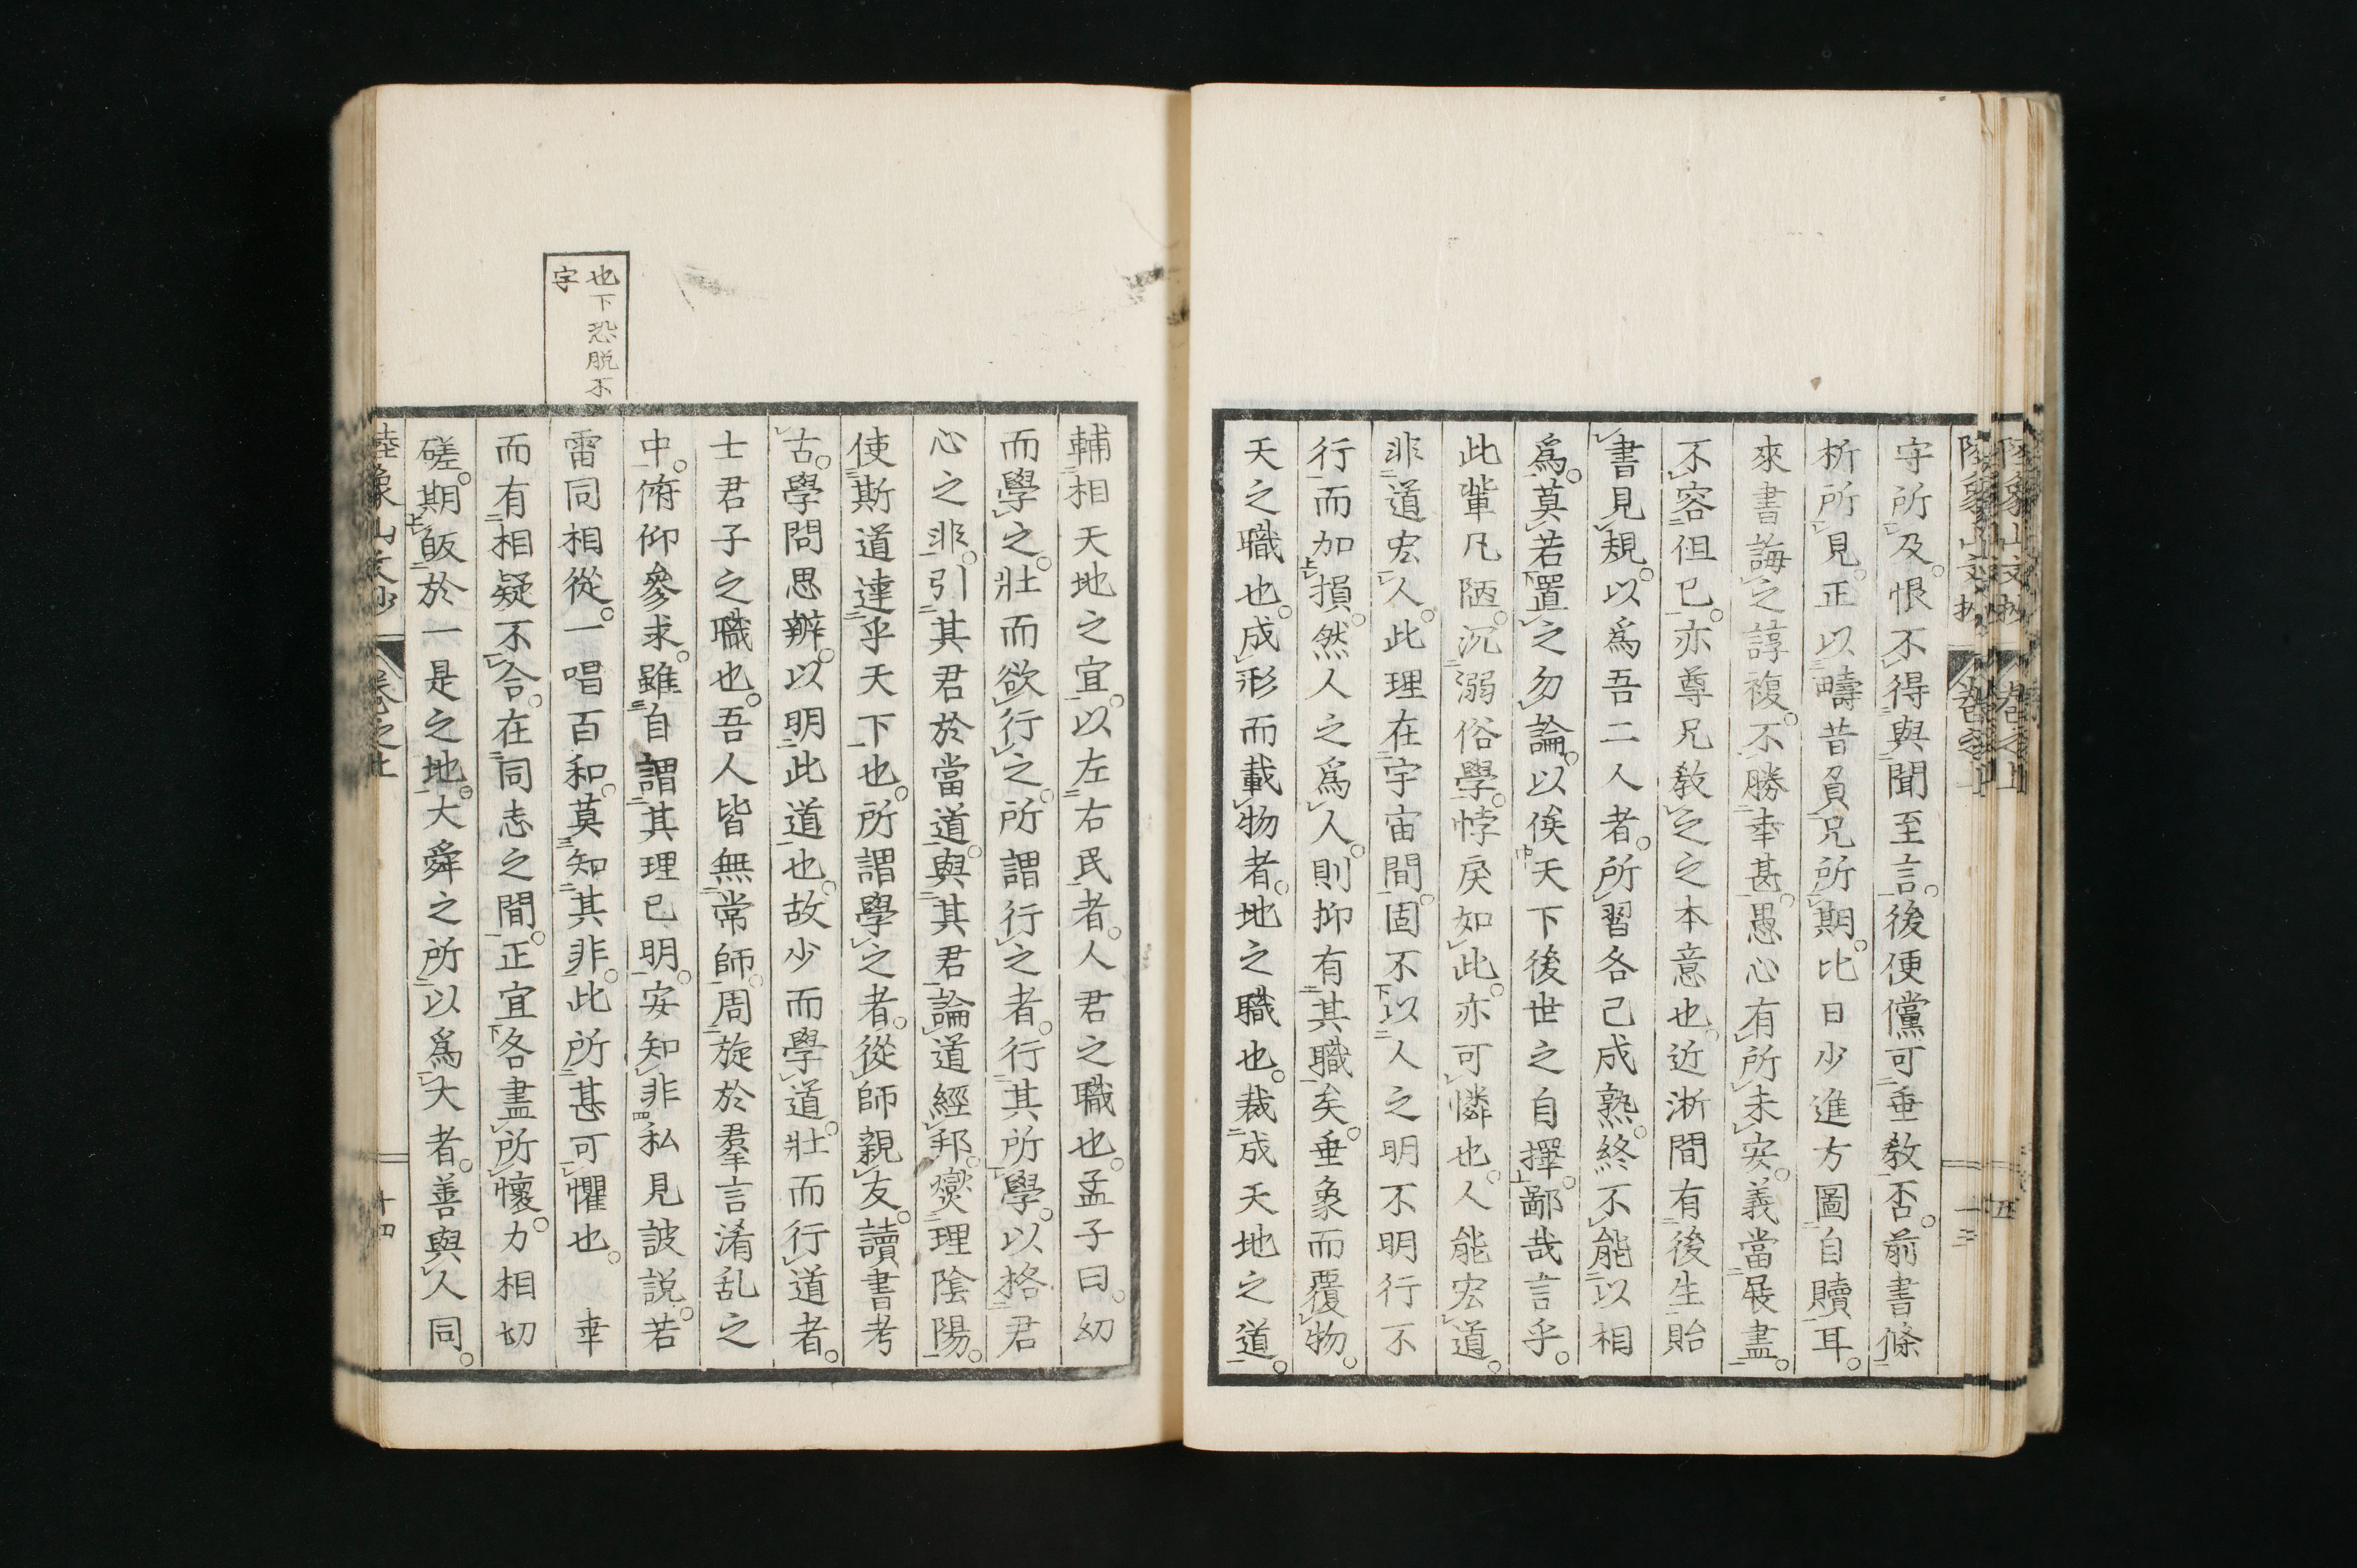 守所及。恨不得與聞至言。後便儻可垂教否。前書條
析所見。正以疇昔負兄所期。比日少進方圖自贖耳。
來書誨之諄複。不勝幸甚。愚心有所未安。義當展盡。
不容但已。亦尊兄教之之本意也。近浙間有後生貽
書見規。以爲吾二人者。所習各已成熟。終不能以相
爲。莫若置之勿論。以俟天下後世之自擇。鄙哉言乎。
此輩凡陋。沉溺俗學。悖戻如此。亦可憐也。人能宏道。
非道宏人。此理在宇宙間。固不以人之明不明行不
行而加損。然人之爲人。則抑有其職矣。垂象而覆物。
天之職也。成形而載物者。地之職也。裁成天地之道。
輔相天地之宜。以左右民者。人君之職也。孟子曰。幼
而學之。壯而欲行之。所謂行之者。行其所學。以格君
心之非。引其君於當道。與其君論道經邦。燮理陰陽。
使斯道達乎天下也。所謂學之者。從師親友。讀書考
古。學問思辨。以明此道也。故少而學道。壯而行道者。
士君子之職也。吾人皆無常師。周旋於羣言淆乱之
中。俯仰參求。雖自謂其理已明。安知非私見詖説。若
雷同相從。一唱百和。莫知其非。此所甚可懼也。 幸
而有相疑不合。在同志之間。正宜各盡所懷。力相切
磋。期皈於一是之地。大舜之所以爲大者。善與人同。
也下恐脱不
字
陸象山文抄 卷之上 十四